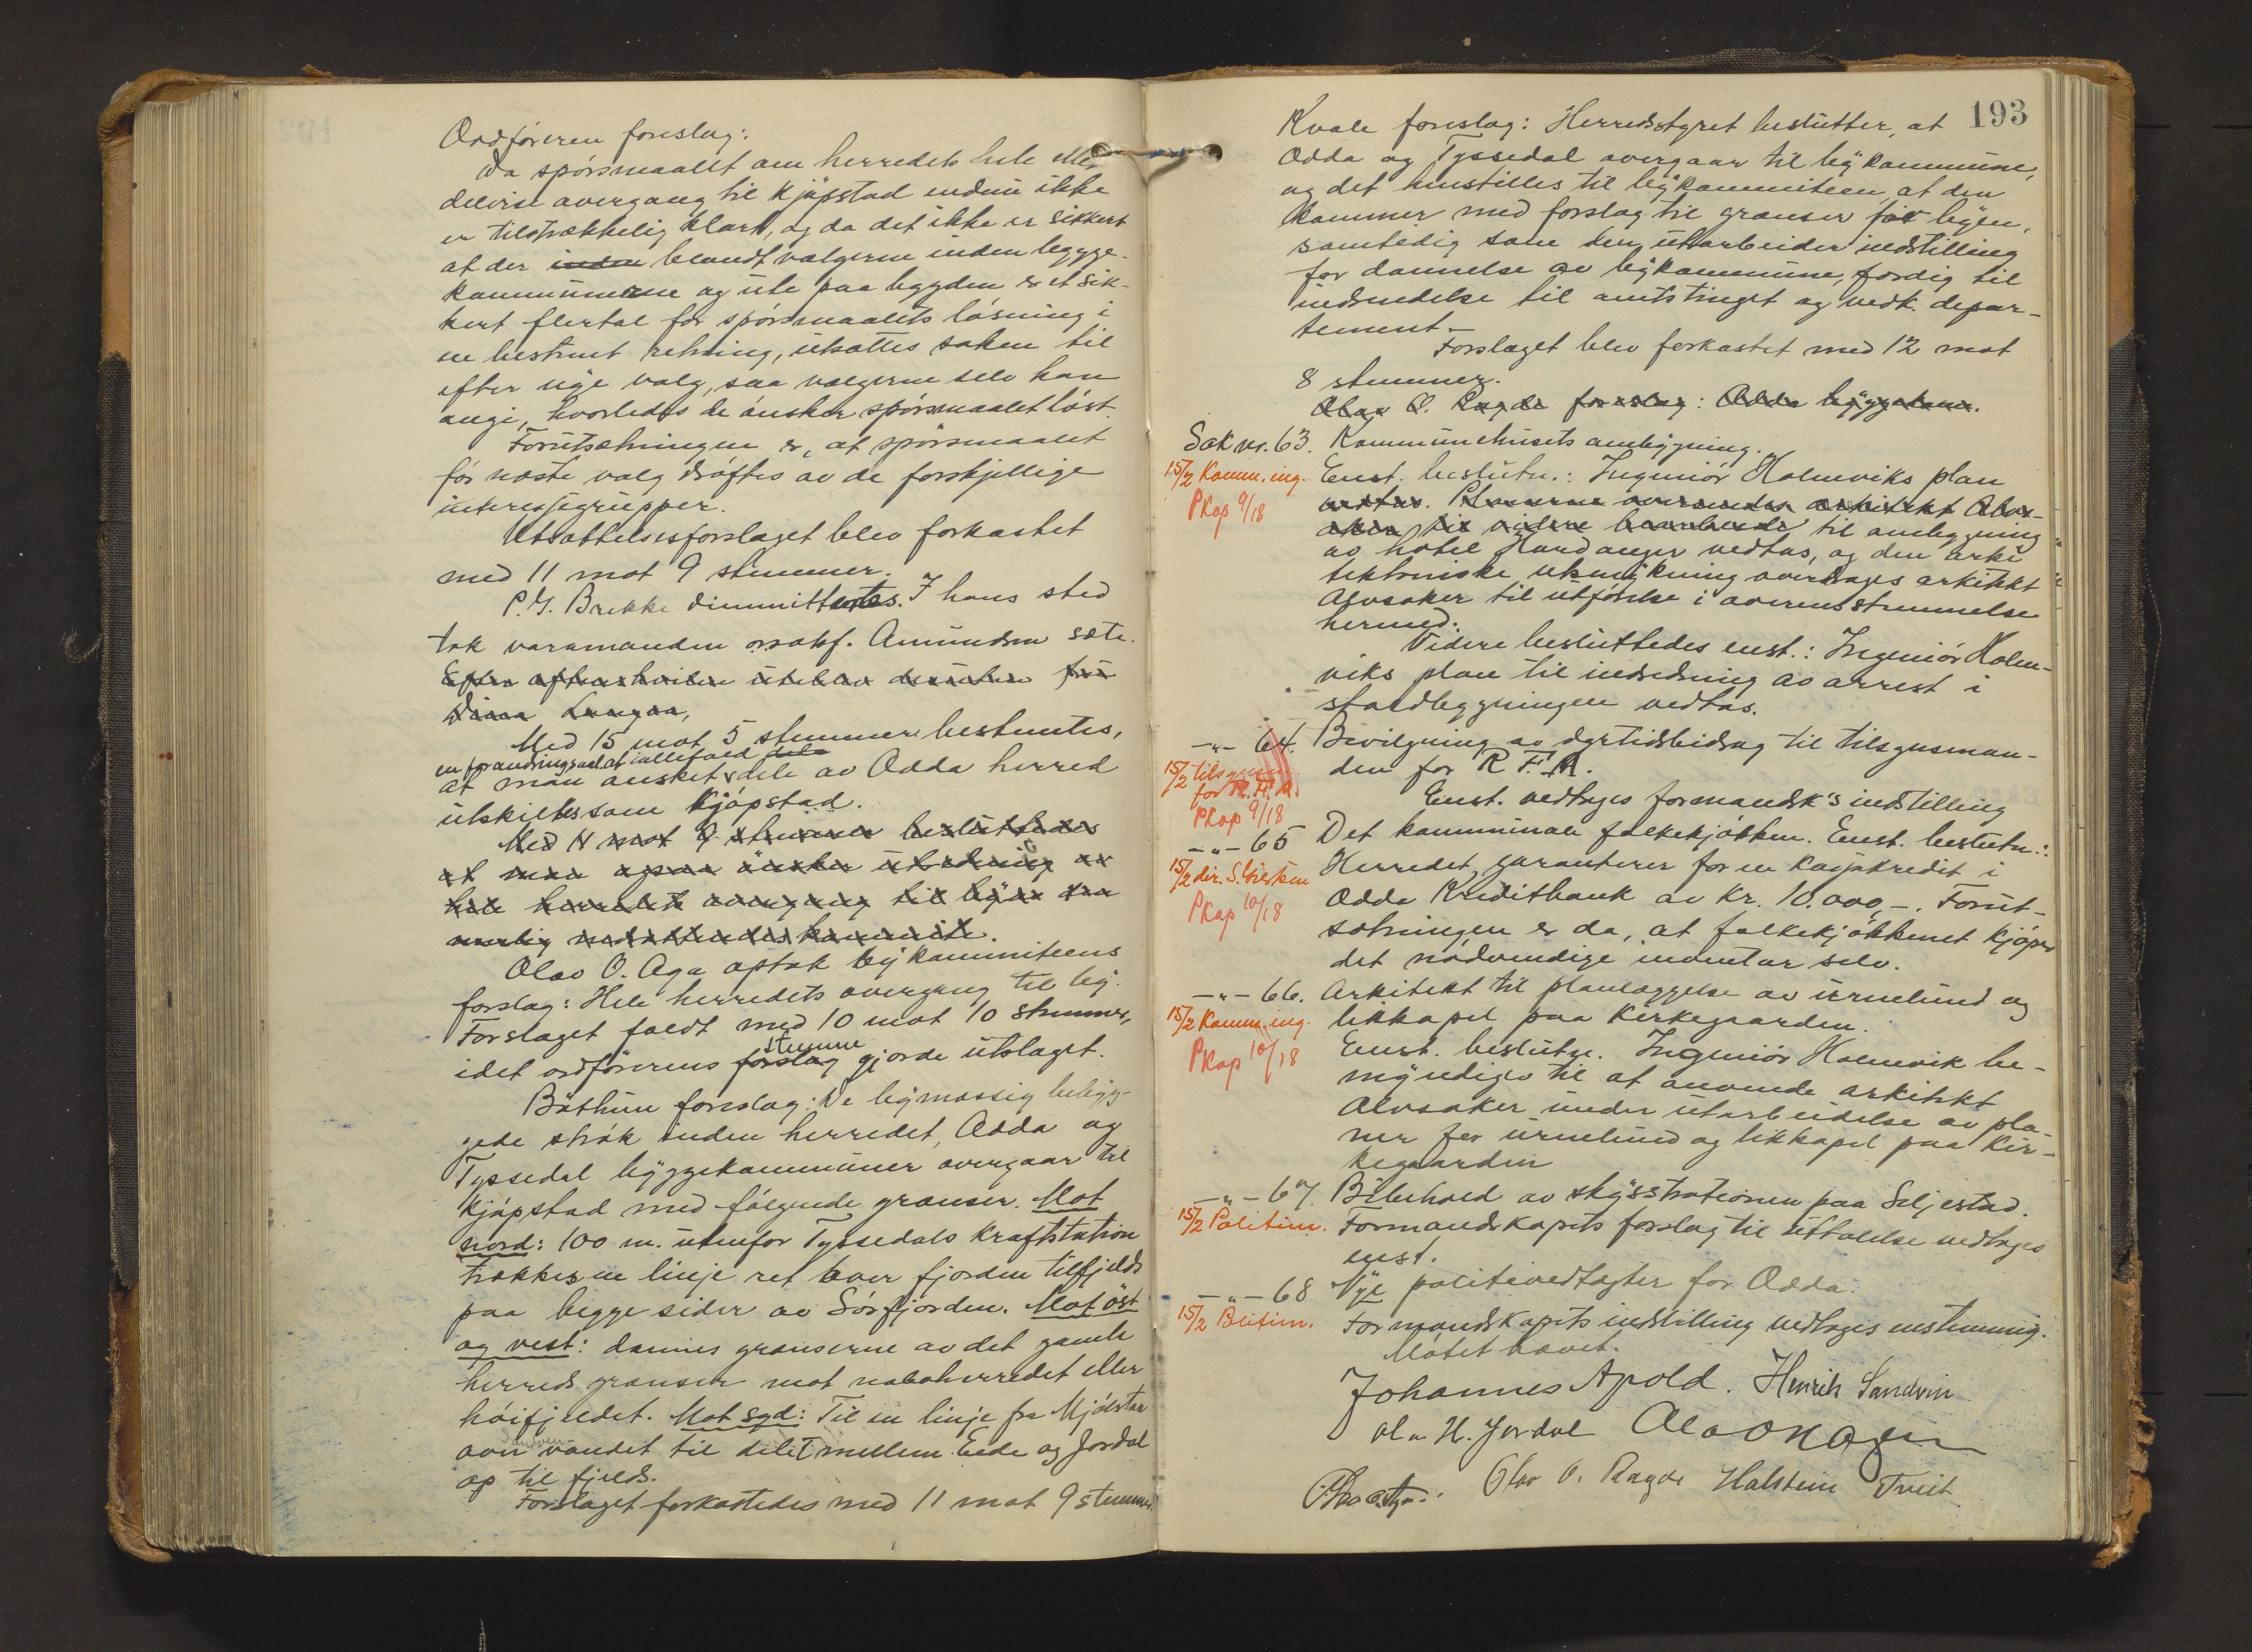 Ordføreren foreslog:
Da spørsmaalet om herredets hele eller
delvise overgang til kjøpstad endnu ikke
er tilstrækkelig klart, og da det ikke er sikkert
at der inden blandt vælgerne inden bygge-
kommunerne og ute paa bygden er et sik-
kert flertal for spørsmaalets løsning i
en bestemt retning, utsættes saken til
efter nye valg, saa vælgerne selv kan
angi, hvorledes de ønsker spørsmaalet løst.
Forutsætningen er, at spørsmaalet
før næste valg drøftes av de forskjellige
interessegrupper.
Utsættelsesforslaget blev forkastet
med 11 mot 9 stemmer.
P. G. Brekke dimmittertes. I hans sted
tok varamanden o.saksf. Amundsen sæte.
Efter aftenshvilen uteblev desuten fru
Dina Langaa,
Med 15 mot 5 stemmer bestemtes,
en forandring ved at ialfald dele
at man ønsket dele av Odda herred
utskiltes som kjøpstad.
Med 11 mot 9 stemmer besluttedes
at man ogsaa ønsker utredning av
hele herredets overgang til by
Olav O. Aga optok bykommiteens
forslag: Hele herredets overgang til by.
Forslaget faldt med 10 mot 10 stemmer,
stemme
idet ordførerens forslag gjorde utslaget.
Båthun foreslog: De bymæssig bebyg-
gede strøk inden herredet, Odda og
Tyssedal byggekommuner overgaar til
kjøpstad med følgende grænser. Mot
nord: 100 m. utenfor Tyssedals kraftstation
trækkes en linje ret over fjorden tilfjelds
paa begge sider av Sørfjorden. Mot øst
og vest: dannes grænserne av det gamle
herreds grænser mot naboherredet eller
høifjeldet. Mot syd: Til en linje fra Mjølstar
Sandven-
over vandet til delet mellem Eide og Jordal
op til fjelds.
Forslaget forkastedes med 11 mot 9 stemmer.
193
Kvale foreslog: Herredsstyret beslutter, at
Odda og Tyssedal overgaar til bykommune,
og det henstilles til bykommiteen, at den
kommer med forslag til grænser for byen,
samtidig som den utarbeider indstilling
for dannelse av bykommune, færdig til
indsendelse til amtstinget og vedk. depar-
tement.
Forslaget blev forkastet med 12 mot
8 stemmer.
Olav O. Ragde foreslog: Odda byggekom.
Sak nr. 63. Kommunehusets ombygning.
15/2 Komm. ing. Enst. beslutn.: Ingeniør Holmviks plan
PKop 9/18 vedtas. Planerne oversendes arkitekt Alvs-
aker til videre bearbeide til ombygning
av hotel Hardanger vedtas, og den arki-
tektoniske utsmykning overdrages arkitekt
Alvsaker til utførelse i overensstemmelse
hermed.
Videre besluttedes enst.: Ingeniør Holm-
viks plan til indredning av arrest i
staldbygningen vedtas.
-"- 64. Bevilgning av dyrtidsbidrag til tilsynsman-
15/2 tilsynsm. den for R. F. A.
for R. F. A.
PKop 9/18 Enst. vedtages formandsk's indstilling
-"- 65 Det kommunale folkekjøkken. Enst. beslutn.:
15/2 dir. S. Gilsken Herredet garanterer for en kassakredit i
PKop 10/18 Odda Kreditbank av kr. 10.000,-. Forut-
sætningen er da, at folkekjøkkenet kjøper
det nødvendige inventar selv.
-"- 66. Arkitekt til planlæggelse av urnelund og
15/2 Komm. ing. likkapel paa kirkegaarden.
PKop 10/18 Enst. beslutn. Ingeniør Holmvik be-
myndiges til at anvende arkitekt
Alvsaker under utarbeidelse av pla-
ner for urnelund og likkapel paa kir-
kegaarden
-"- 67. Bibehold av skysstationen paa Seljestad.
15/2 Politim. Formandskapets forslag til uttalelse vedtages
enst.
-"- 68 Nye politivedtægter for Odda.
15/2 Politim. Formandskapets indstilling vedtages enstemmig.
Møtet hævet.
Johannes Apold. Henrik Sandvin
Ol. H. Jordal
Olav O. Ragde Halstein Tveit